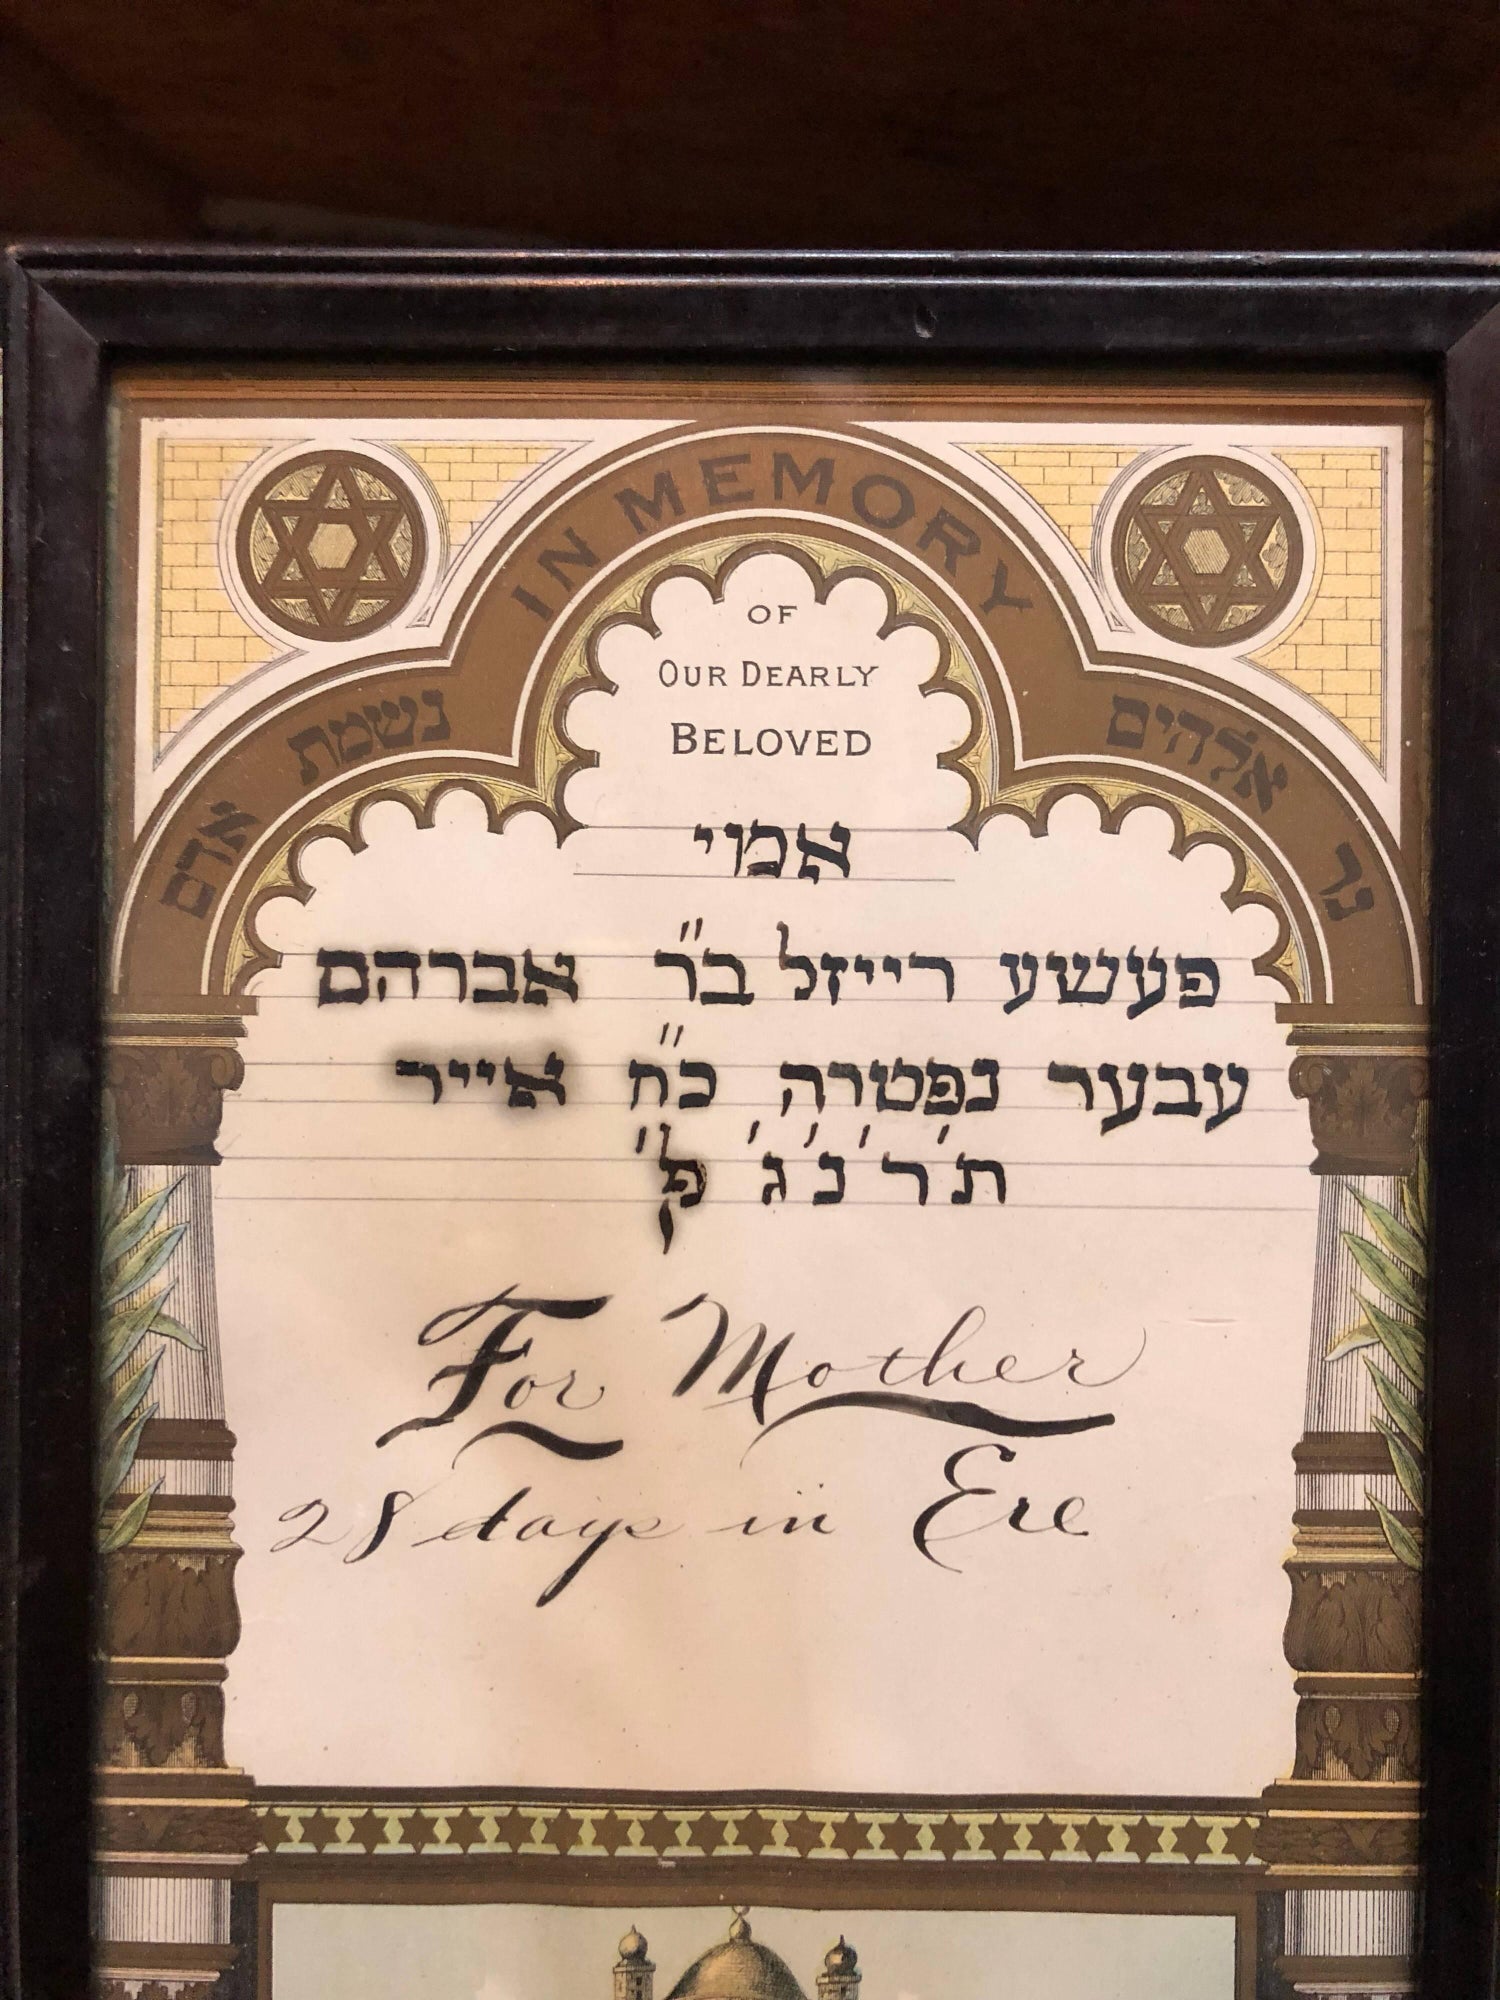 IN MEMORY
נר אלהים נשמת אדם
OF
OUR DEARLY
BELOVED
אמי
פעשע רייזל ב״ר אברהם
עבער נפטרה כ״ח אייר
ת'ר'נ'ג' לפ'
For Mother
28 days in Ere